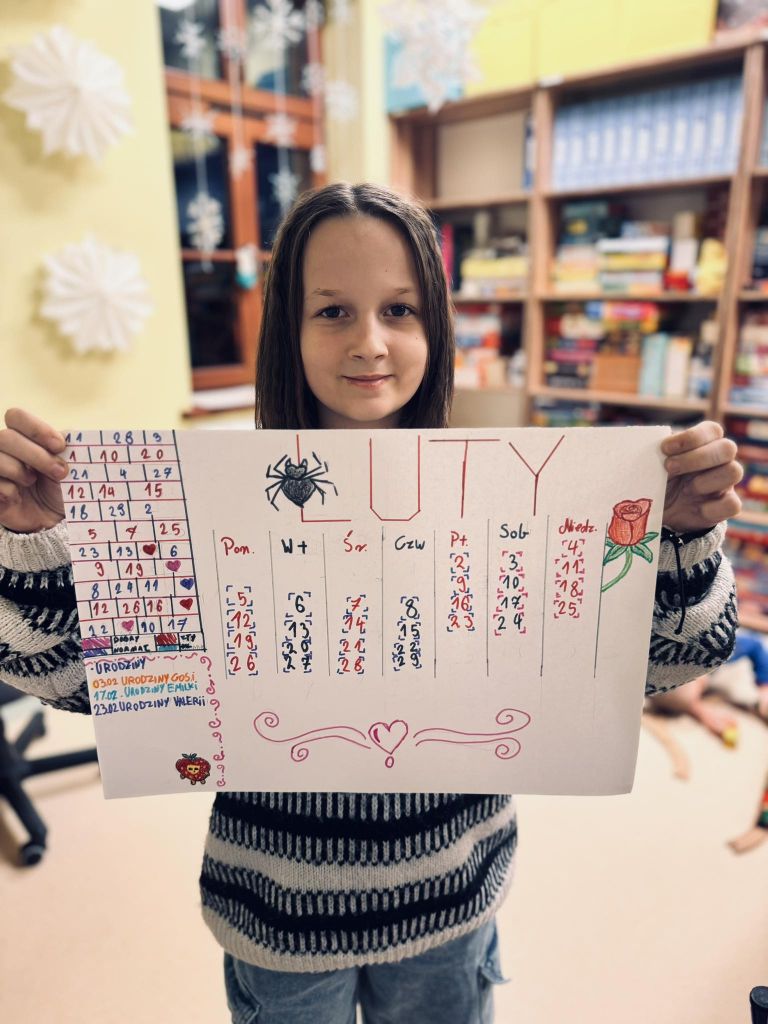 LUTY
11 28 3
1 10 20
21 4 27
12 14 15
16 29 2
5 7 25
23 13 6
9 19
8 24 11
12 26 16
22 90 17
DOBRY
HUMOR
- URODZINY
03.02 URODZINY GOSi
17.02 - URODZINY EMILKI
23.02 URODZINY VALERII
Pon. Wt Śr. Czw Pt. Sob Niedz.
2 3 4
9 10 11
5 6 7 8 16 17 18
12 13 14 15 23 24 25
19 20 21 22
26 27 28 29